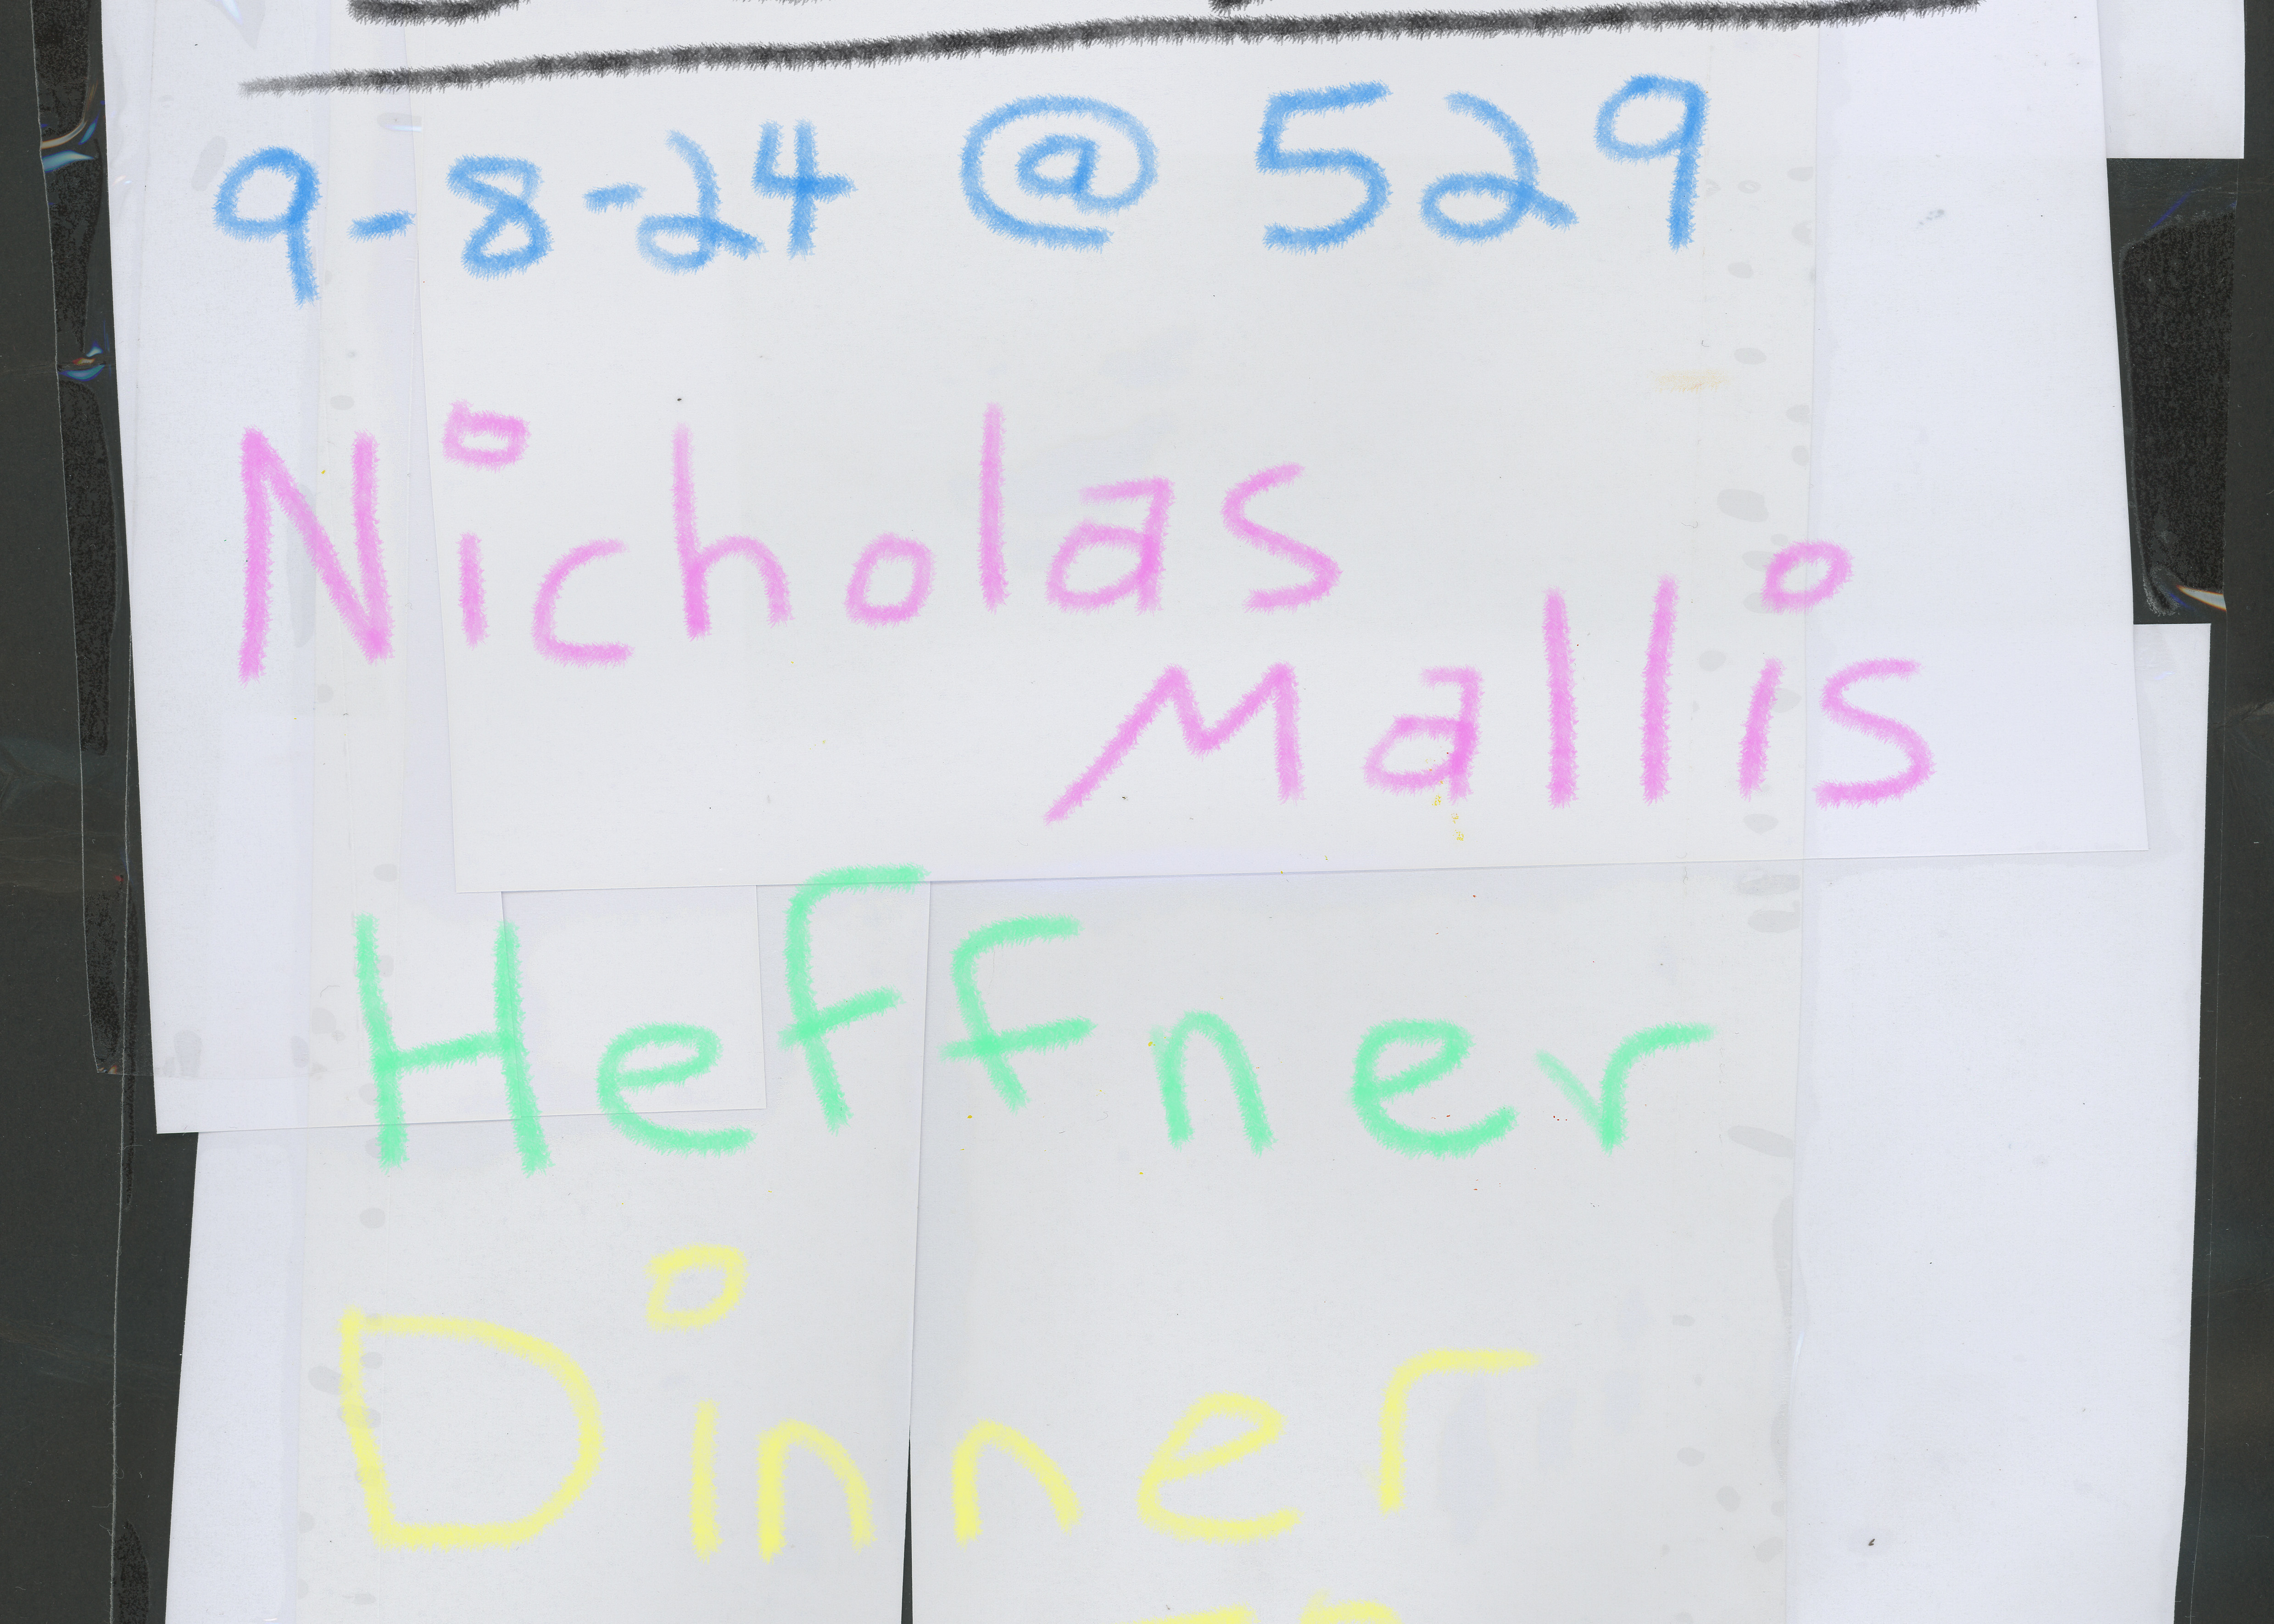 9-8-24 @ 529
Nicholas
Mallis
Heffner
Dinner